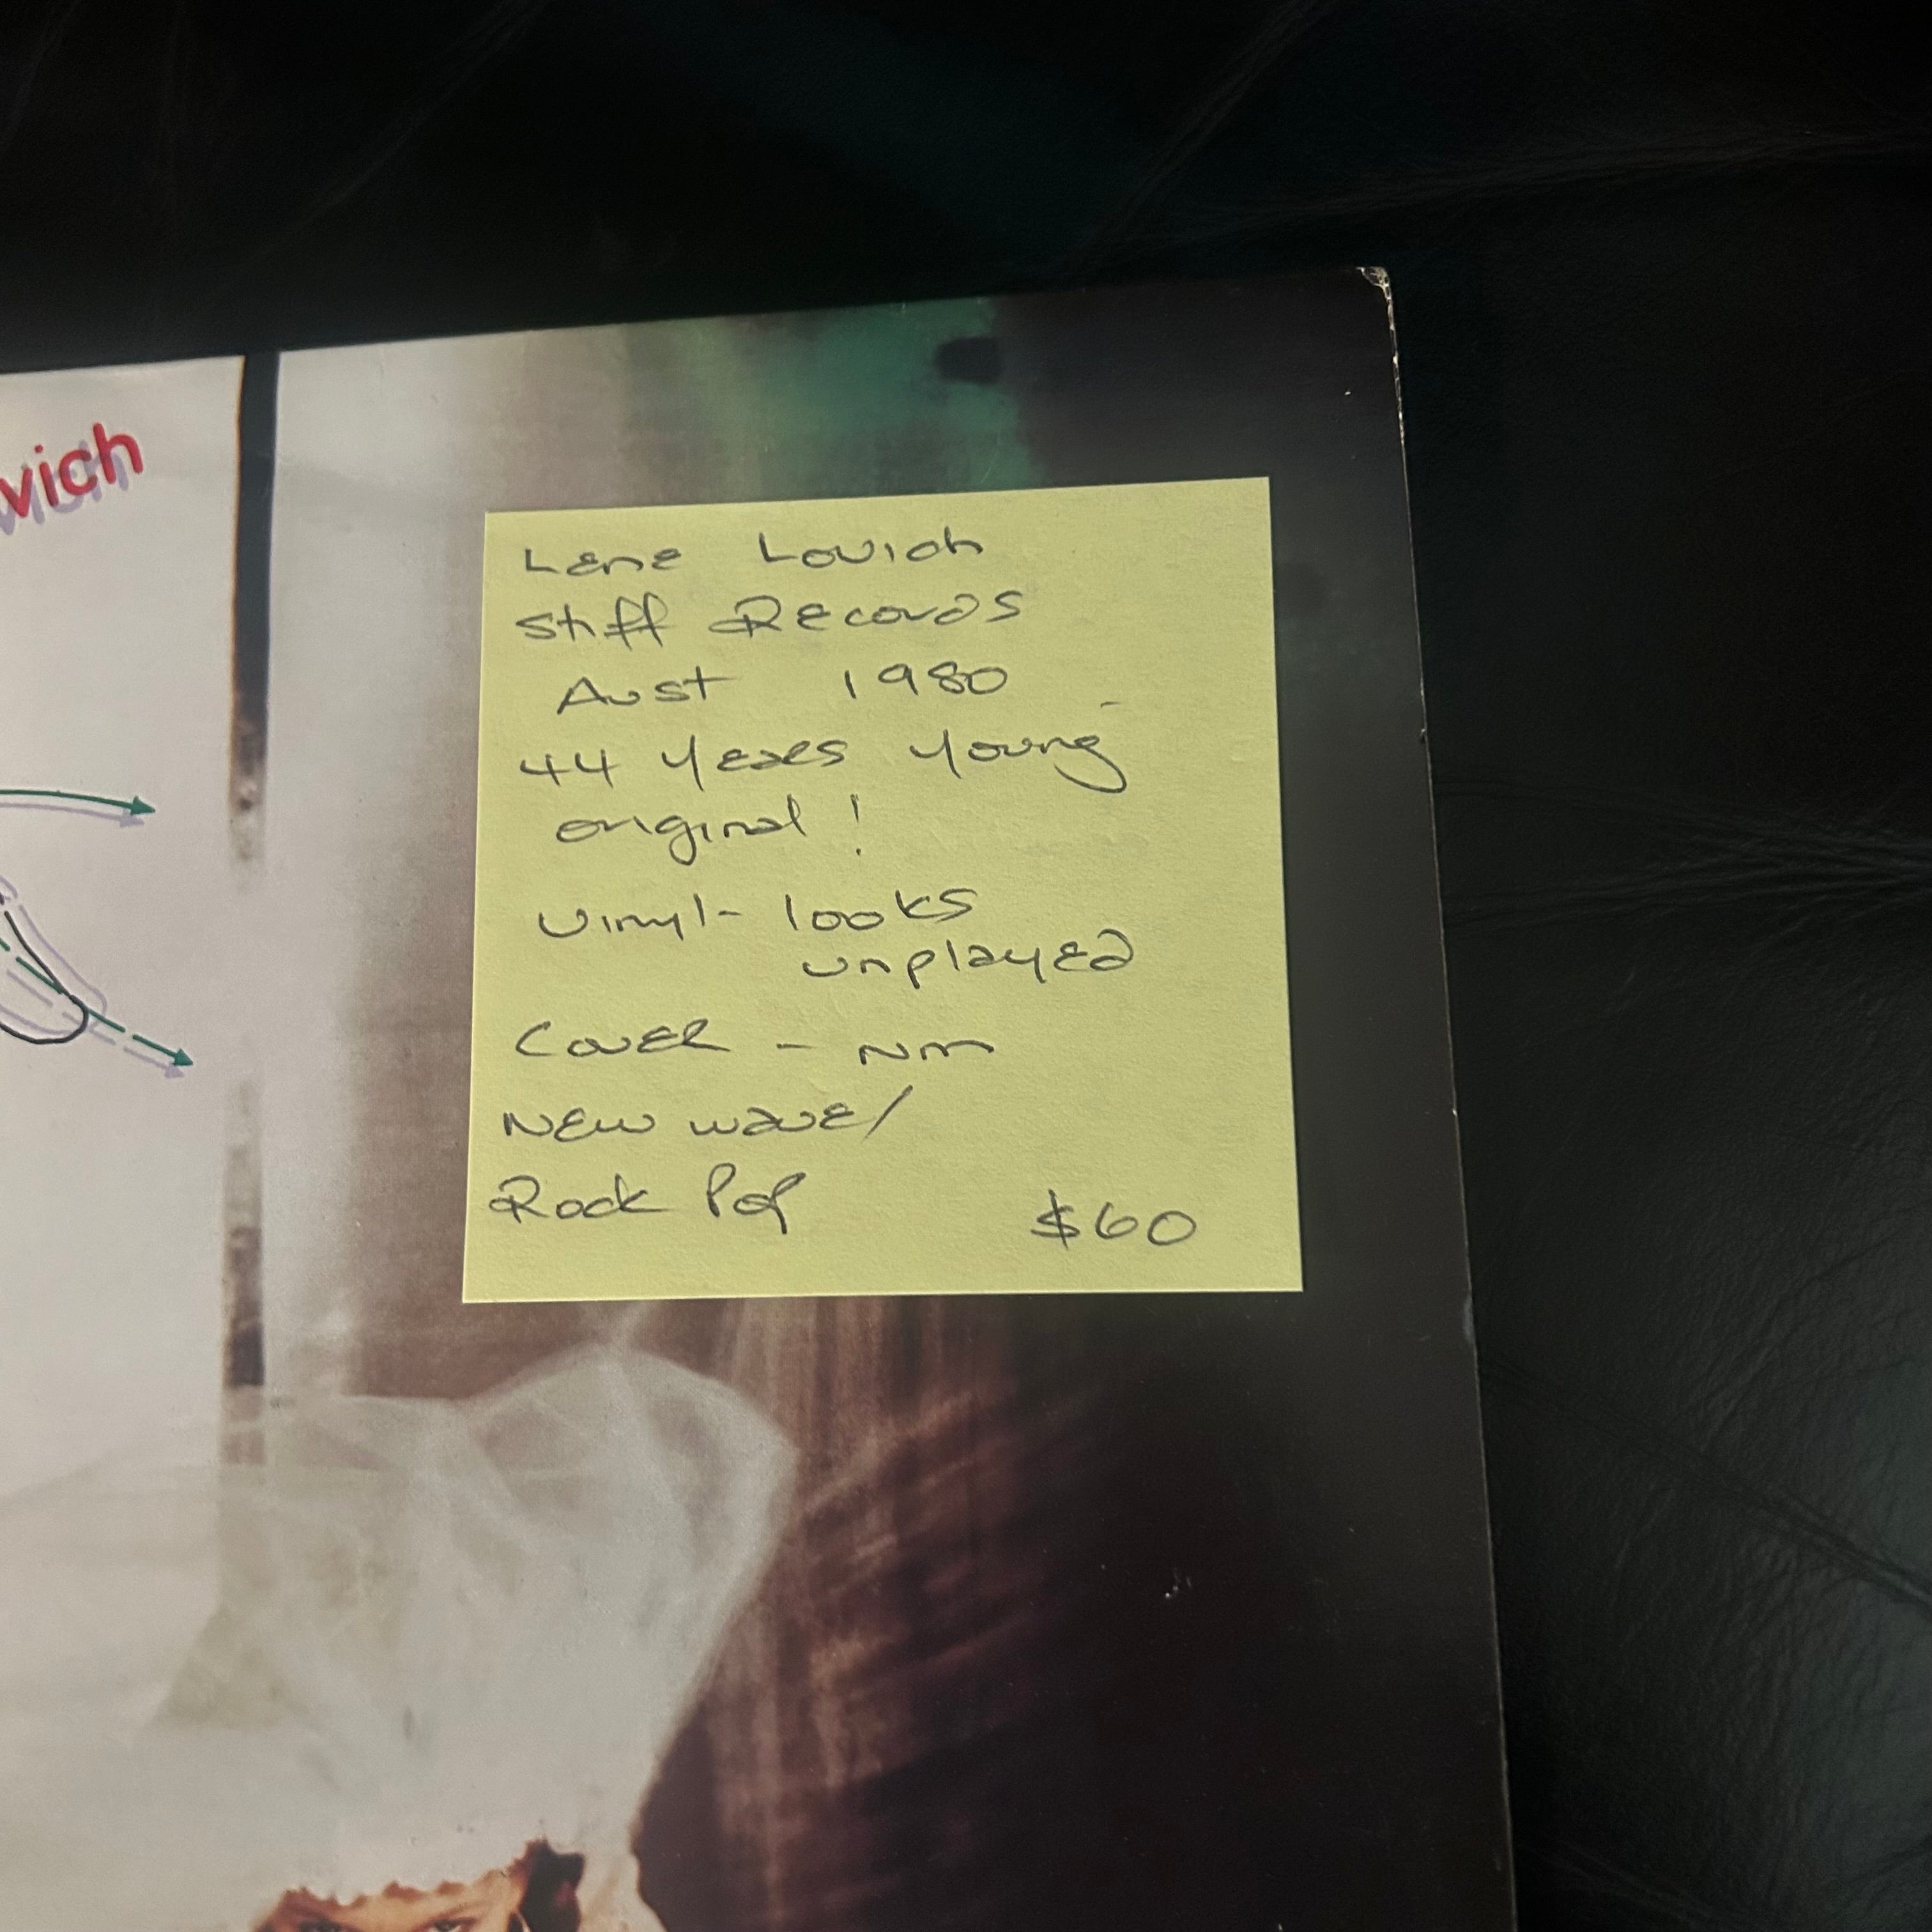 vich
Lene Lovich
Stiff Records
Aust 1980
44 years young
original!
Vinyl- looks
unplayed
Cover - NM
New wave/
Rock Pop $60